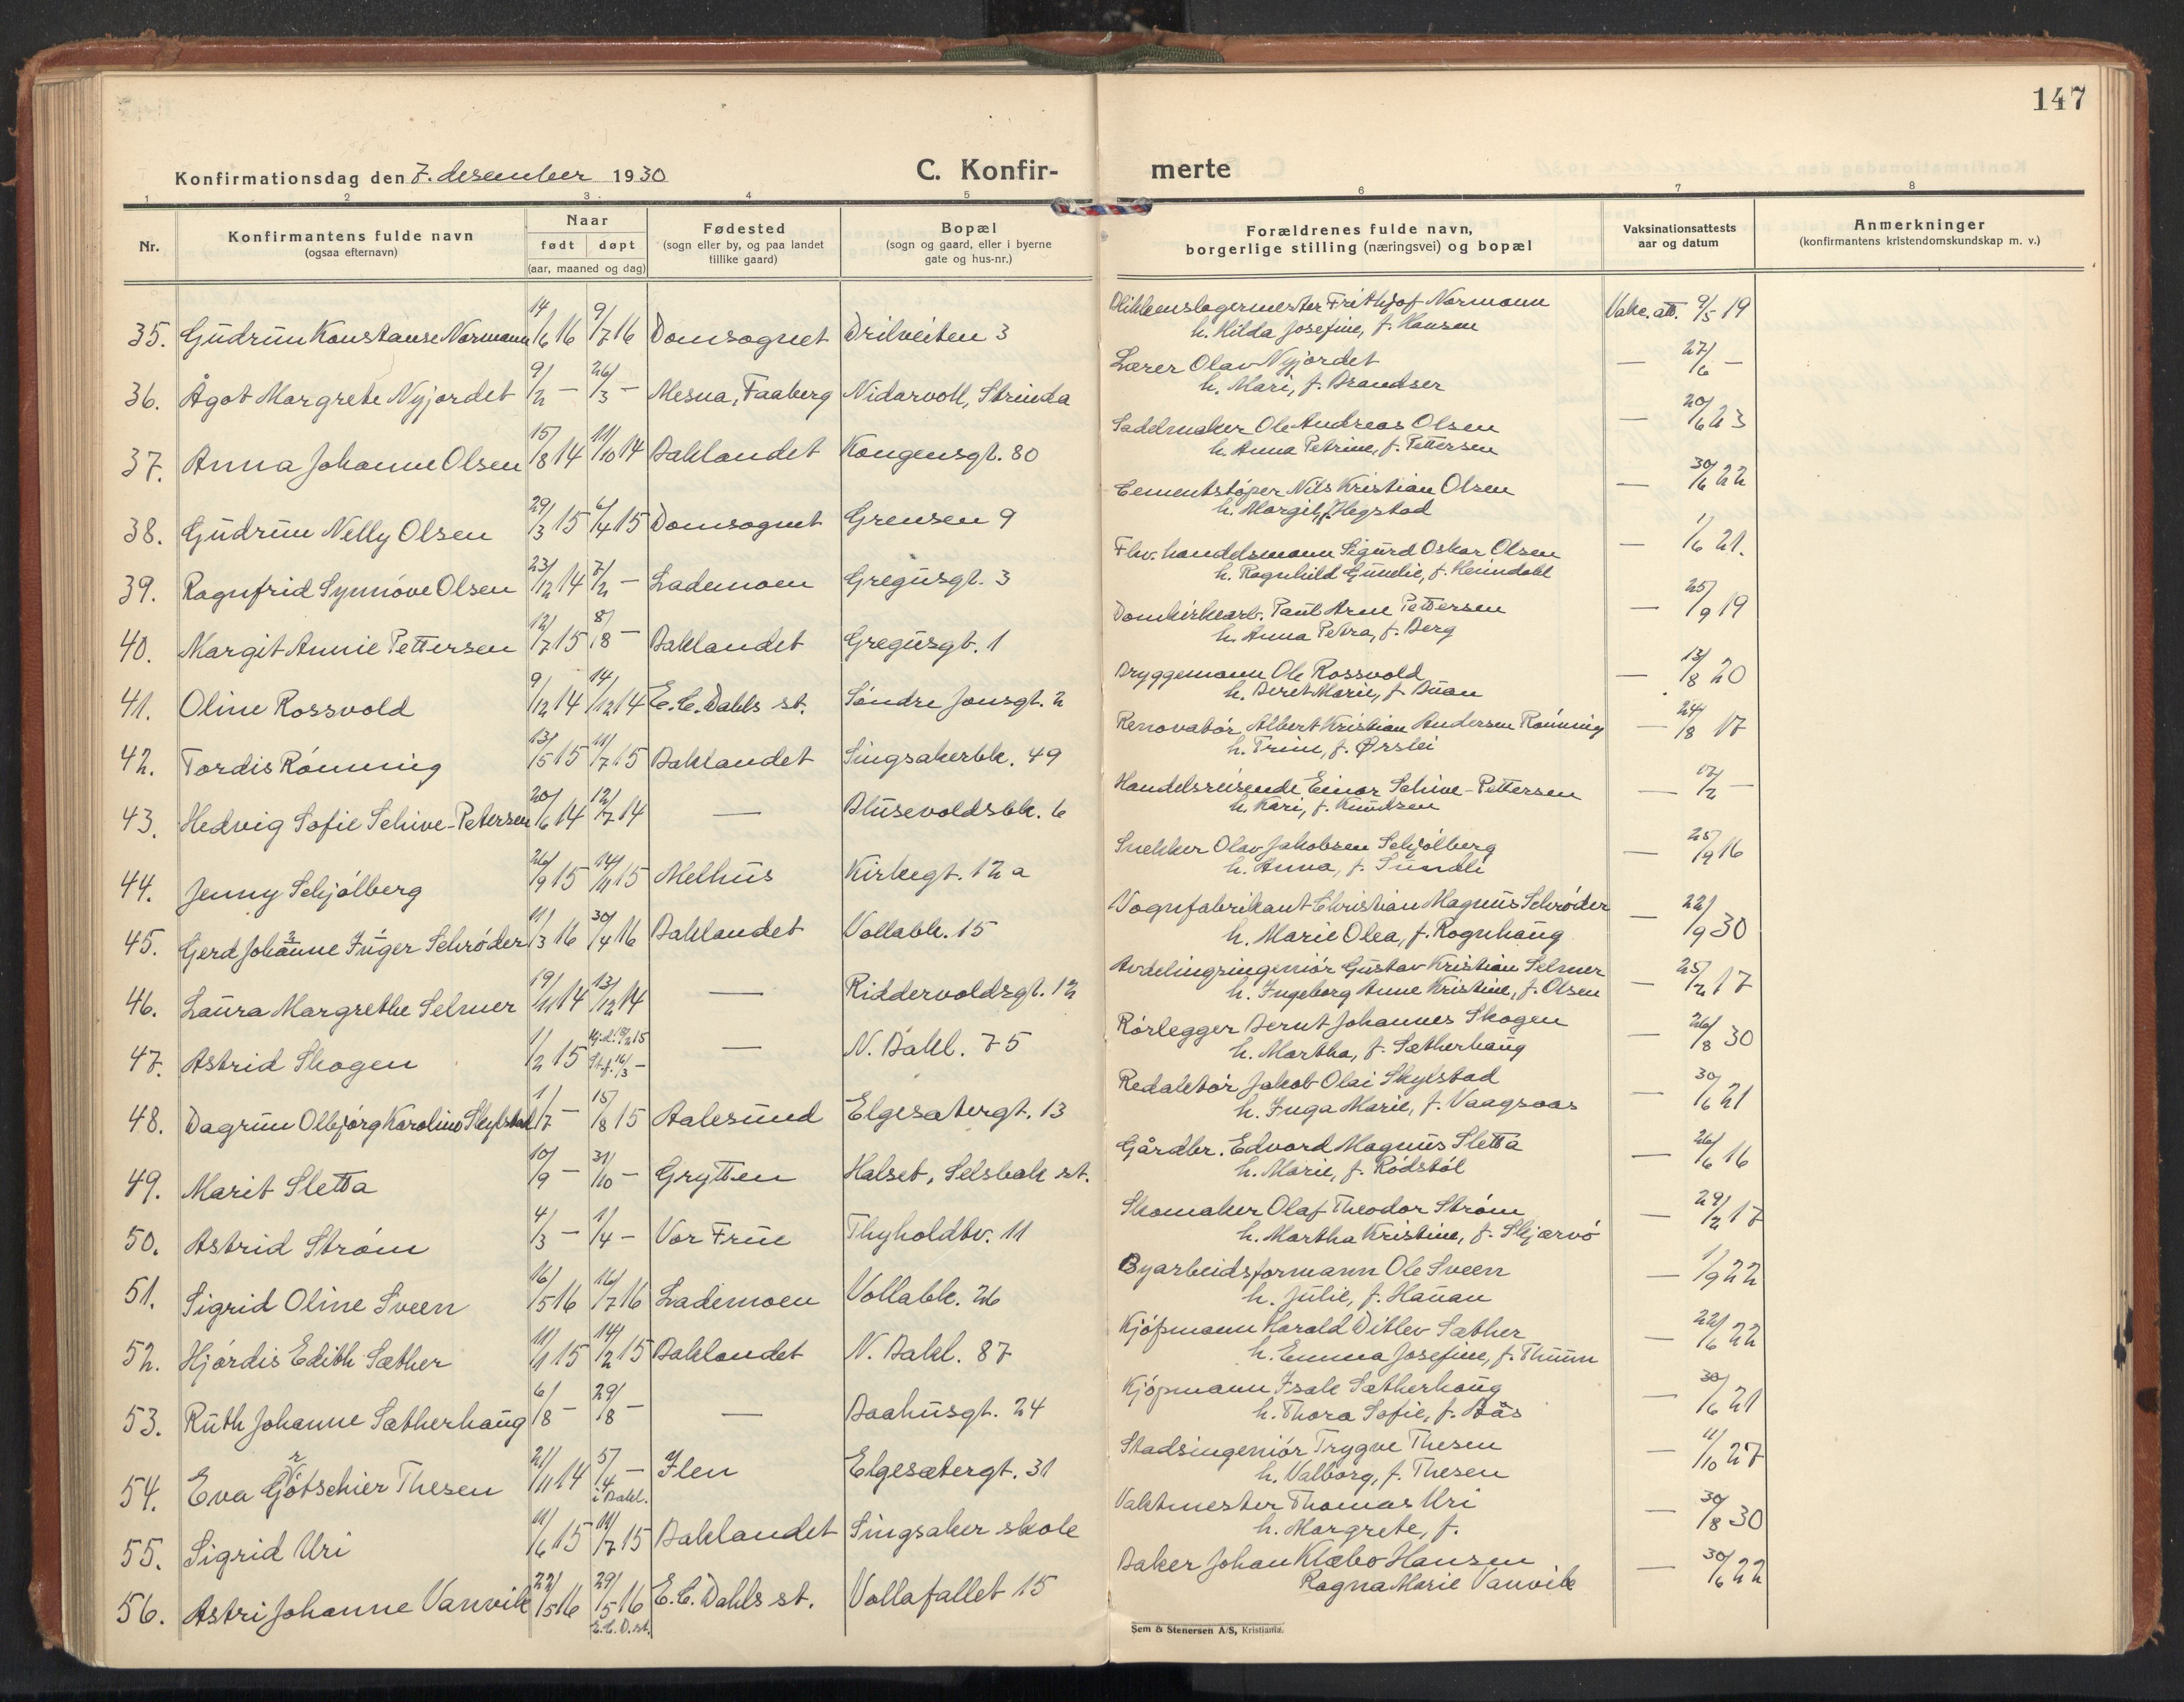 147
Konfirmationsdag den 7. desember 1930
C. Konfir-
merte
1 2 3 4 5 6 7 8
Nr.
Konfirmantens fulde navn
(ogsaa efternavn)
Naar
født døpt
(aar, maaned og dag)
Fødested
(sogn eller by, og paa landet
tillike gaard)
Bopæl
(sogn og gaard, eller i byerne
gate og hus-nr.)
Forældrenes fulde navn,
borgerlige stilling (næringsvei) og bopæl
Vaksinationsattests
aar og datum
Anmerkninger
(konfirmantens kristendomskundskap m. v.)
35. Gudrun Konstanse Normann 14/6 16 9/7 16 Domsognet Drilveiten 3
Blikkenslagermester Frithjof Normann Vakc. att. 9/5 19
h. Hilda Josefine, f. Hansen
36. Ågot Margrete Nyjordet 9/2 — 26/3 — Mesna, Faaberg Nidarvoll, Strinda
Lærer Olav Nyjordet — 27/6 —
h. Mari, f. Brandser
37. Anna Johanne Olsen 15/8 14 11/10 14 Baklandet Kongensgt. 80
Sadelmaker Ole Andreas Olsen — 20/6 23
h. Anna Petrine, f. Pettersen
38. Gudrun Nelly Olsen 29/3 15 6/4 15 Domsognet Grensen 9
Cementstøper Nils Kristian Olsen — 30/6 22
h. Margit, f. Hegstad
39. Ragnfrid Synnøve Olsen 23/12 14 7/2 — Lademoen Gregusgt. 3
Fhv. handelsmann Sigurd Oskar Olsen — 1/6 21.
h. Ragnhild Gunelie, f. Heimdahl
40. Margit Annie Pettersen 12/7 15 8/8 — Baklandet Gregusgt. 1
Domkirkearb. Paul Arne Pettersen — 25/9 19
h. Anna Petra, f. Berg
41. Oline Rossvold 9/12 14 14/12 14 E. C. Dahls st. Søndre Jonsgt. 2
Bryggemann Ole Rossvold — 13/8 20
h. Beret Marie, f. Buan
42. Tordis Rønning 13/5 15 11/7 15 Baklandet Singsakerbk. 49
Renovatør Albert Kristian Andersen Rønning — 24/8 17
h. Trine, f. Ørslei
43. Hedvig Sofie Schive-Petersen 20/6 14 12/7 14 — Blusevoldsbk. 6
Handelsreisende Einar Schive-Pettersen — 17/2 —
h. Kari, f. Knudsen
44. Jenny Schjølberg 26/9 15 14/11 15 Melhus Kirkegt. 12 a
Snekker Olav Jakobsen Schjølberg — 25/9 16
h. Anna, f. Sundli
45. Gerd Johanne Inger Schrøder 11/3 16 30/4 16 Baklandet Vollabk. 15
Vognfabrikant Christian Magnus Schrøder — 22/9 30
h. Marie Olea, f. Rognhaug
46. Laura Margrethe Selmer 19/11 14 13/12 14 — Riddervoldsgt. 12
Avdelingsingeniør Gustav Kristian Selmer — 25/2 17
h. Ingeborg Anne Kristine, f. Olsen
47. Astrid Skogen 1/2 15 Hj.d. 10/2 15 — N. Bakl. 75
St.f. 16/3 —
Rørlegger Bernt Johannes Skogen — 26/8 30
h. Martha, f. Sætherhaug
48. Dagrun Olbjørg Karoline Skylstad 1/7 — 15/8 15 Aalesund Elgesætergt. 13
Redaktør Jakob Olai Skylstad — 30/6 21
h. Inga Marie, f. Vaagsaas
49. Marit Sletta 10/9 — 31/10 — Grytten Halset, Selsbak st.
Gårdbr. Edvard Magnus Sletta — 26/6 16
h. Marie, f. Rødstøl
50. Astrid Strøm 4/3 — 1/4 — Vor Frue Thyholdtv. 11
Skomaker Olaf Theodor Strøm — 29/2 17
h. Martha Kristine, f. Skjærvø
51. Sigrid Oline Sveen 16/5 16 16/7 16 Lademoen Vollabk. 26
Byarbeidsformann Ole Sveen — 1/9 22
h. Julie, f. Hauan
52. Hjørdis Edith Sæther 11/1 15 14/2 15 Baklandet N. Bakl. 87
Kjøpmann Harald Ditlev Sæther — 22/6 22
h. Emma Josefine, f. Thuun
53. Ruth Johanne Sætherhaug 6/8 — 29/8 — — Baahusgt. 24
Kjøpmann Isak Sætherhaug — 30/6 21
h. Thora Sofie, f. Bås
54. Eva Götschier Thesen 21/11 14 5/4 — Ilen Elgesætergt. 31
i Bakl.
Stadsingeniør Trygve Thesen — 11/10 27
h. Valborg, f. Thesen
55. Sigrid Uri 11/6 15 11/7 15 Baklandet Singsaker skole
Vaktmester Thomas Uri — 30/8 30
h. Margrete, f.
56. Astri Johanne Vanvik 22/5 16 29/5 16 E. C. Dahls st. Vollafallet 15
E. C. D. st.
Baker Johan Klæbo Hansen — 30/6 22
Ragna Marie Vanvik
Sem & Stenersen A/S, Kristiania.